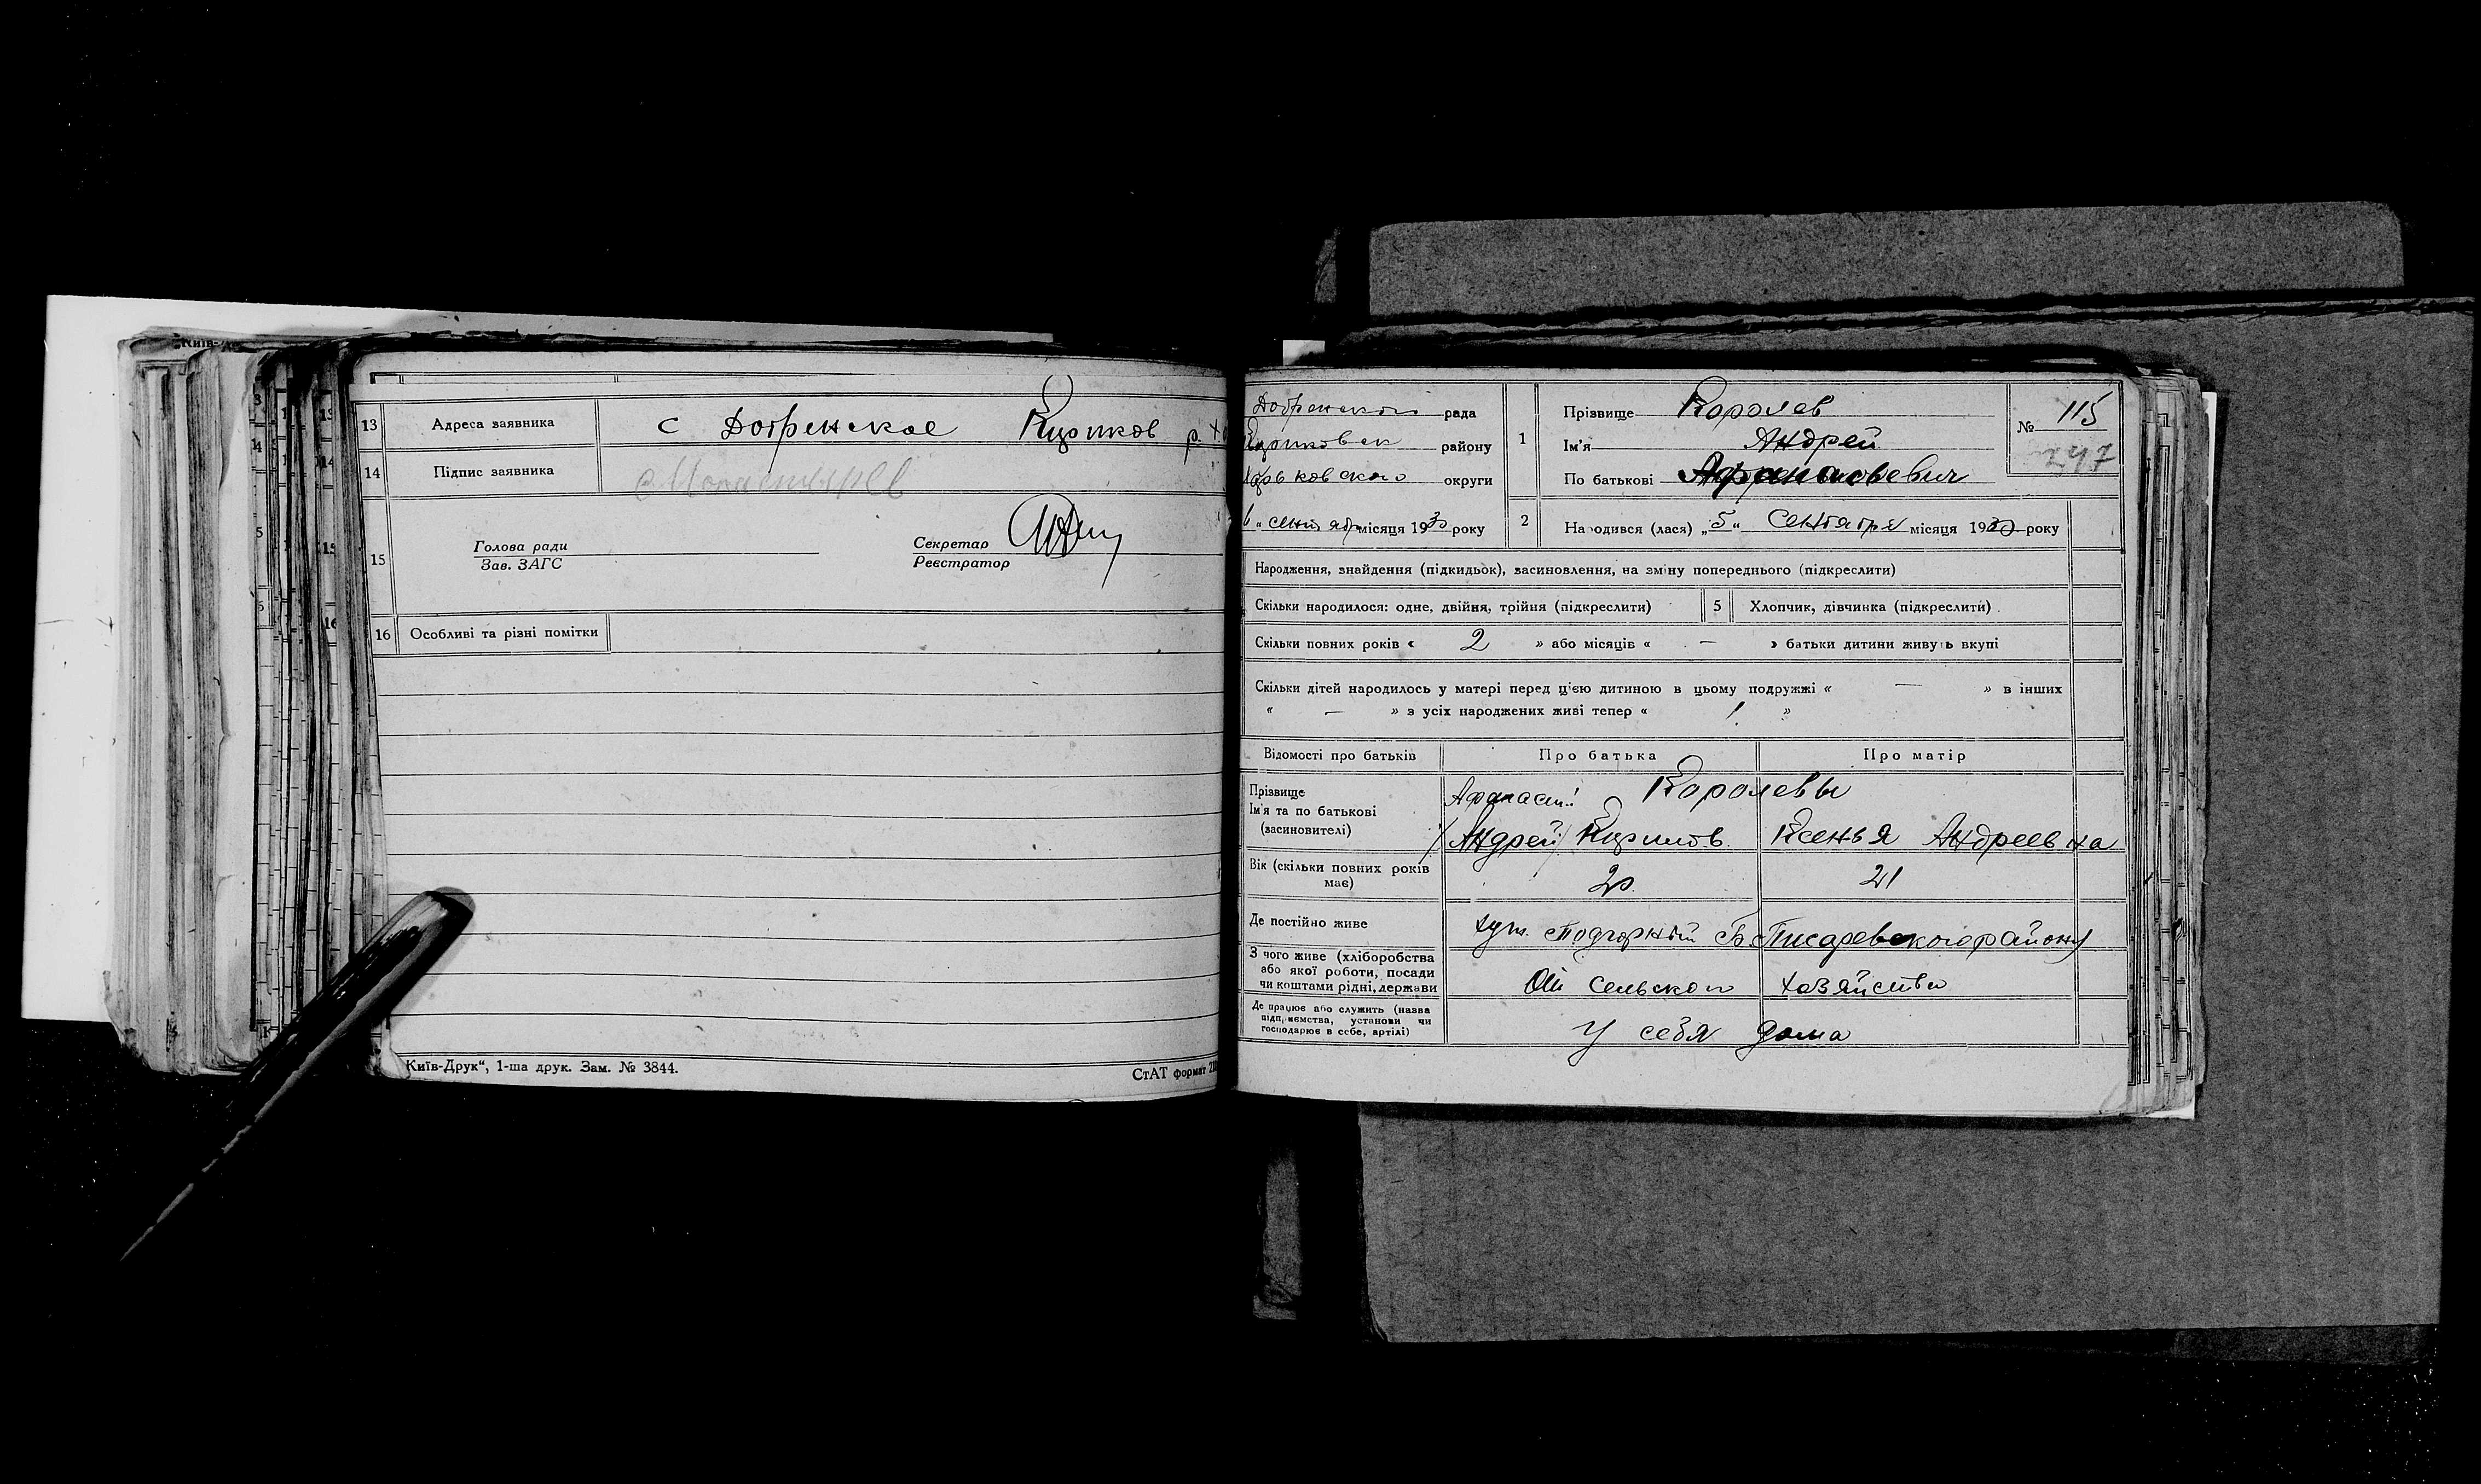 Київ-
13 Адреса заявника с Добренское Куриков р. Х
14 Підпис заявника
15 Голова ради Секретар
Зав. ЗАГС Реєстратор
16 Особливі та різні помітки
Київ-Друк“, 1-ша друк. Зам. № 3844. СтАТ формат
Добренской рада
району
округи
місяця 1930 року
1 Прізвище Королев
Ім'я Андрей
По батькові Афанасьевич
№ 115
247
2 Народився (лася) „5“ Сентября місяця 1930 року
Народження, знайдення (підкидьок), засиновлення, на зміну попереднього (підкреслити)
Скільки народилося: одне, двійня, трійня (підкреслити) 5 Хлопчик, дівчинка (підкреслити)
Скільки повних років « 2 » або місяців « — » батьки дитини живуть вкупі
Скільки дітей народилось у матері перед цією дитиною в цьому подружжі « — » в інших
« — » з усіх народжених живі тепер « 1 »
Відомості про батьків Про батька Про матір
Прізвище Королевы
Ім'я та по батькові Афанасий
(засновителі) /Андрей/ Кирилов. Ксенья Андреевна
Вік (скільки повних років має) 20 21
Де постійно живе хут. Подгорний Б. Писаревского району
З чого живе (хліборобства
або якої роботи, посади
чи коштами рідні, держави От сельского хазяйства
Де працює або служить (назва
підприємства, установи чи
господарює в себе, артілі) У себя дома